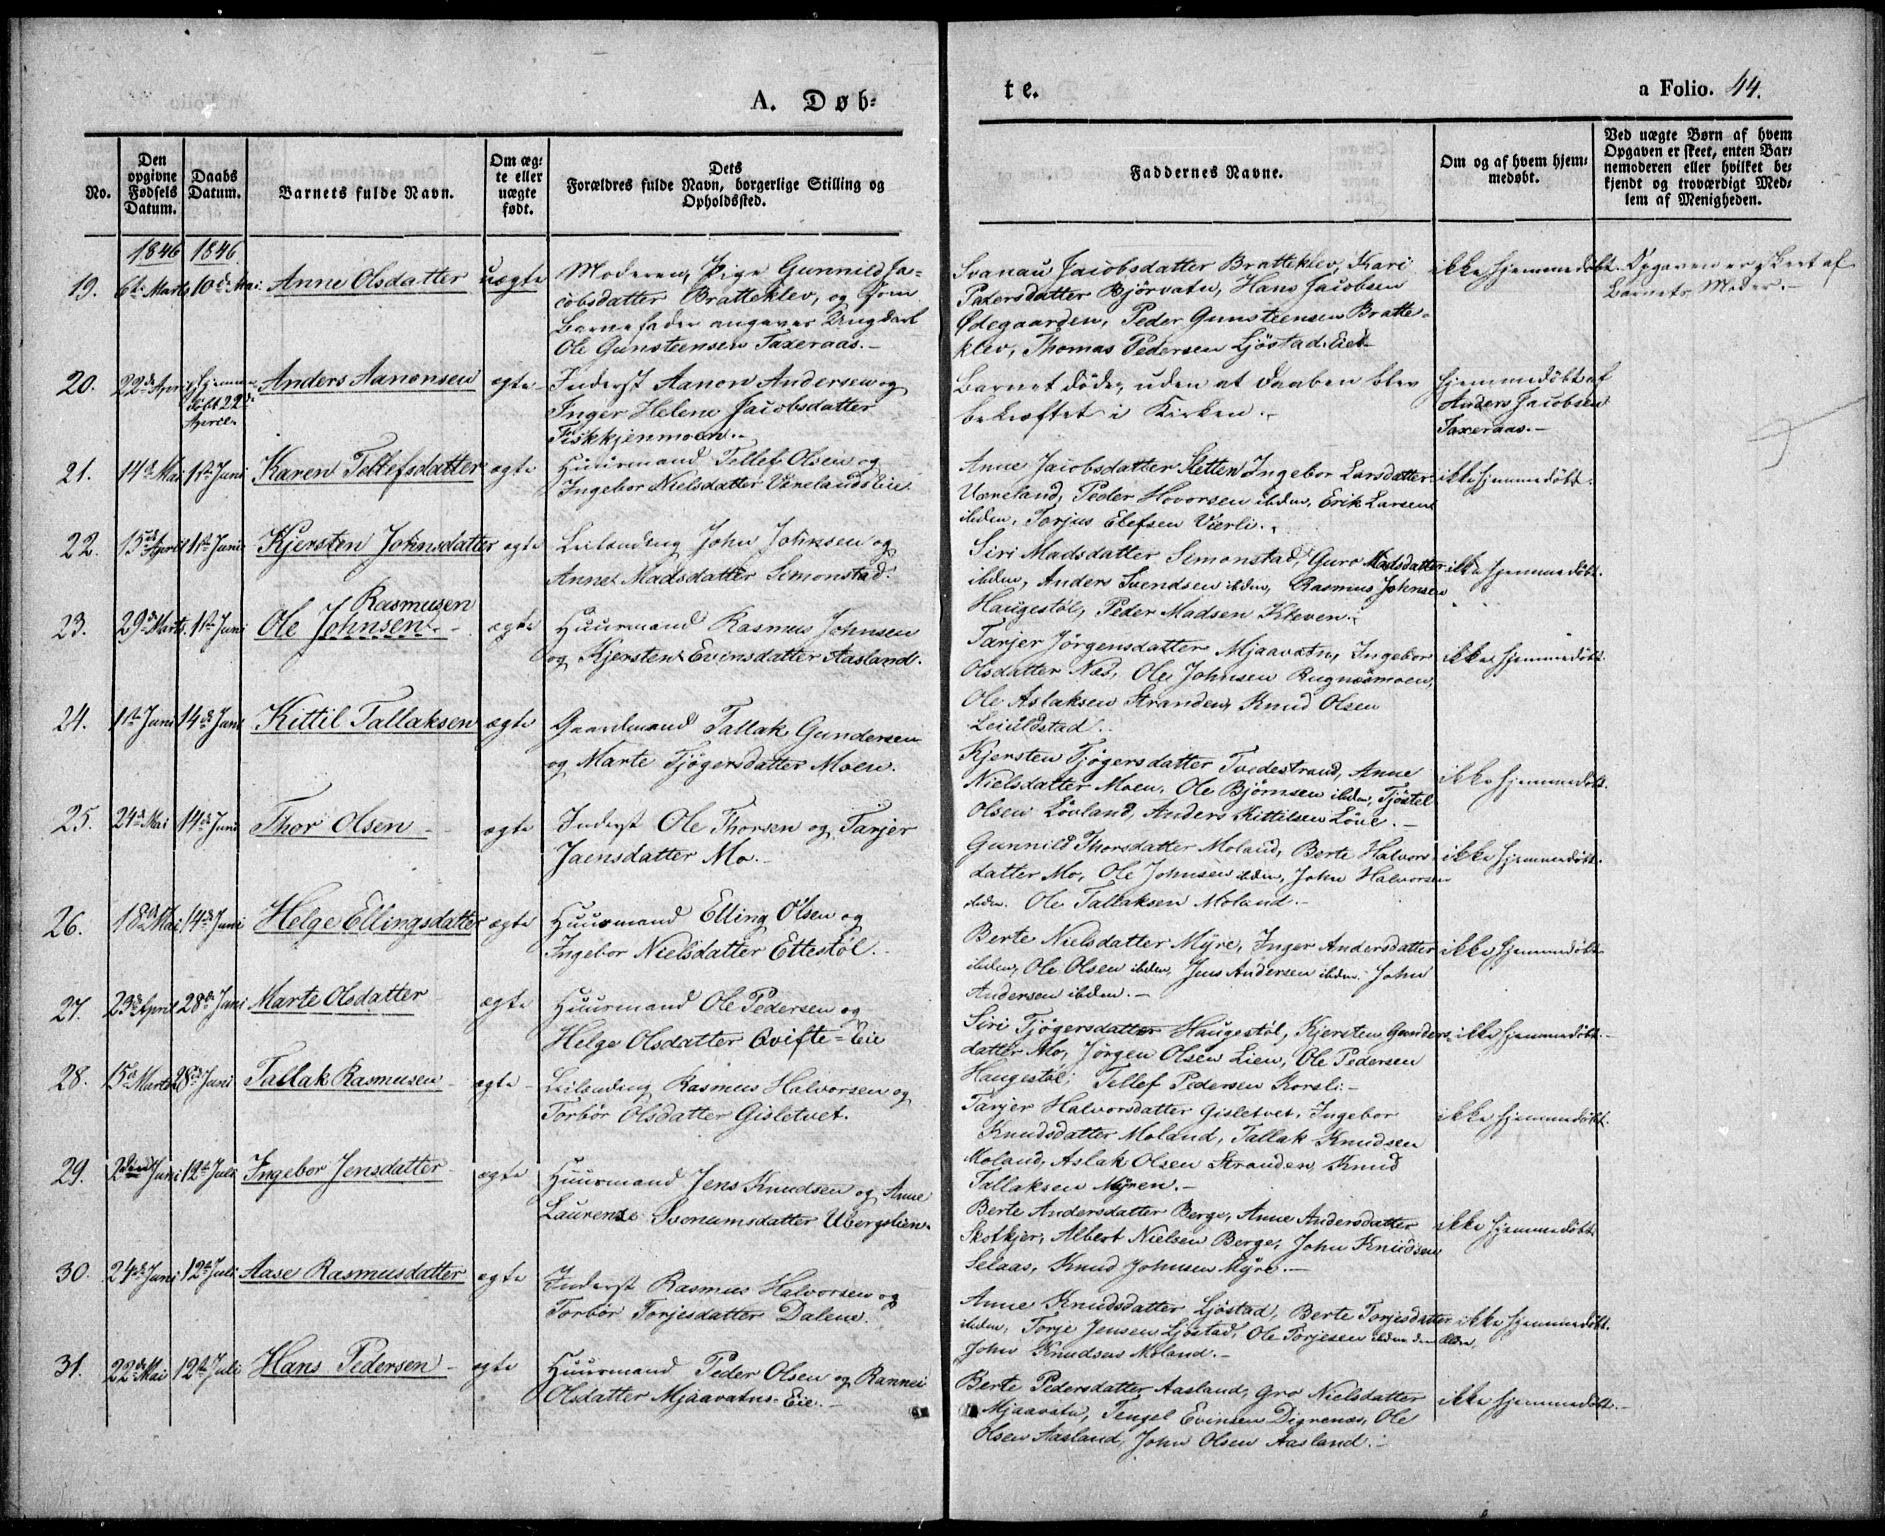 A. Døb-
te.
a Folio. 44.
No.
Den opgivne Fødsels Datum.
Daabs Datum.
Barnets fulde Navn.
Om ægte eller uægte født.
Dets
Forældres fulde Navn, borgerlige Stilling og
Opholdssted.
Faddernes Navne.
Om og af hvem hjemmedøbt.
Ved uægte Børn af hvem
Opgaven er skeet, enten Bar-
nemoderen eller hvilket be-
kjendt og troværdigt Med-
lem af Menigheden.
1846 1846
19. 6te Marts 10de Mai Anne Olsdatter uægte
Moderen, Pige Gunnild Ja-
cobsdatter Bratteklev, og som
Barnefader angaves Ungkarl
Ole Gunsteensen Taxeraas.-
Svanau Jacobsdatter Bratteklev, Kari
Pedersdatter Bjørvatn, Hans Jacobsen
Ødegaarden, Peder Gunsteensen Bratte-
klev, Thomas Pedersen Ljøstad Eie.
ikke hjemmedøbt.
Opgaven er skeet af
Barnets Moder.-
20. 22de April hjemme-
døbt 22de
April.
Anders Aanonsen ægte
Inderst Aanon Andersen og
Inger Helene Jacobsdatter
Fiskkjenmoen.-
Barnet døde, uden at Daaben blev
bekræftet i Kirken.-
hjemmedøbt af
Anders Jacobsen
Taxeraas.-
21. 14de Mai 1ste Juni Karen Tellefsdatter ægte
Huurmand Tellef Olsen og
Ingebor Nielsdatter Vænelands Eie.
Anne Jacobsdatter Sletten, Ingebor Larsdatter
Væneland, Peder Hovorsen ibiden, Erik Larsen
ibiden, Torjus Elefsen Værli.
ikke hjemmedøbt.
22. 15de April 1ste Juni Kjersten Johnsdatter ægte
Leilending John Johnsen og
Anne Madsdatter Simonstad.
Siri Madsdatter Simonstad, Guro Madsdatter
ibiden, Anders Svendsen ibiden, Rasmus Johnsen
Haugestøl, Peder Madsen Kleven.
ikke hjemmedøbt.
Rasmusen
23. 29de Marts 1ste Juni Ole Johnsen. ægte
Huurmand Rasmus Johnsen
og Kjersten Evinsdatter Aasland.
Tarjer Jørgensdatter Mjaavatn, Ingebor
Olsdatter Næs, Ole Johnsen Rugnæsmoen,
Ole Aslaksen Stranden, Knud Olsen
Leiuldstad.
ikke hjemmedøbt.
24. 1ste Juni 14de Juni Kittil Tallaksen ægte
Gaardmand Tallak Gundersen
og Marte Tjøgersdatter Moen.
Kjersten Tjøgersdatter Tvedestrand, Anne
Nielsdatter Moen, Ole Bjørnsen ibiden, Tjøstel
Olsen Løvland, Anders Kittilsen Løve.-
ikke hjemmedøbt.
25. 24de Mai 14de Juni Thor Olsen ægte
Inderst Ole Thorsen og Tarjer
Jaensdatter Mo.
Gunnild Thorsdatter Moland, Berte Halvors-
datter Mo, Ole Johnsen ibiden, John Halvorsen
ibiden. Ole Tallaksen Moland.-
ikke hjemmedøbt.
26. 18de Mai 14de Juni Helge Ellingsdatter ægte
Huurmand Elling Olsen og
Ingebor Nielsdatter Ettestøl.
Berte Nielsdatter Myre, Inger Andersdatter
ibiden, Ole Olsen ibiden, Jens Andersen ibiden, John
Andersen ibiden.-
ikke hjemmedøbt
27. 23de April 28de Juni Marte Olsdatter ægte
Huurmand Ole Pedersen og
Helge Olsdatter Qvifte=Eie
Siri Tjøgersdatter Haugestøl, Kjersten Gunders-
datter Mo, Jørgen Olsen Lien, Ole Pedersen
Haugestøl, Tellef Pedersen Korsli.-
ikke hjemmedøbt.
28. 15de Marts 28de Juni Tallak Rasmusen ægte
Leilending Rasmus Halvorsen og
Torbør Olsdatter Gisletvet.
Tarjer Halvorsdatter Gisletvet, Ingebor
Knudsdatter Moland, Tallak Knudsen
Moland, Aslak Olsen Stranden, Knud
Tallaksen Myren.-
ikke hjemmedøbt.
29. 2den Juni 12te Juli Ingebor Jensdatter ægte
Huurmand Jens Knudsen og Anne
Laurense Svenumsdatter Ubergslien.
Berte Andersdatter Berge, Anne Andersdatter
Skotkjer, Albert Nielsen Berge, John Knudsen
Selaas, Knud Johnsen Myre.-
ikke hjemmedøbt.
30. 24de Juni 12te Juli Aase Rasmusdatter ægte
Inderst Rasmus Halvorsen og
Torbør Torjesdatter Dalene.
Anne Knudsdatter Ljøstad, Berte Torjesdatter
ibiden, Torje Jensen Ljøstad, Ole Torjesen ibiden
John Knudsen Moland.-
ikke hjemmedøbt.
31. 22de Mai 12te Juli Hans Pedersen ægte
Huurmand Peder Olsen og Rannei
Olsdatter Mjaavatns=Eie.
Berte Pedersdatter Aasland, Gro Nielsdatter
Mjaavatn, Tengel Evinsen Digrenæs, Ole
Olsen Aasland, John Olsen Aasland.-
ikke hjemmedøbt.